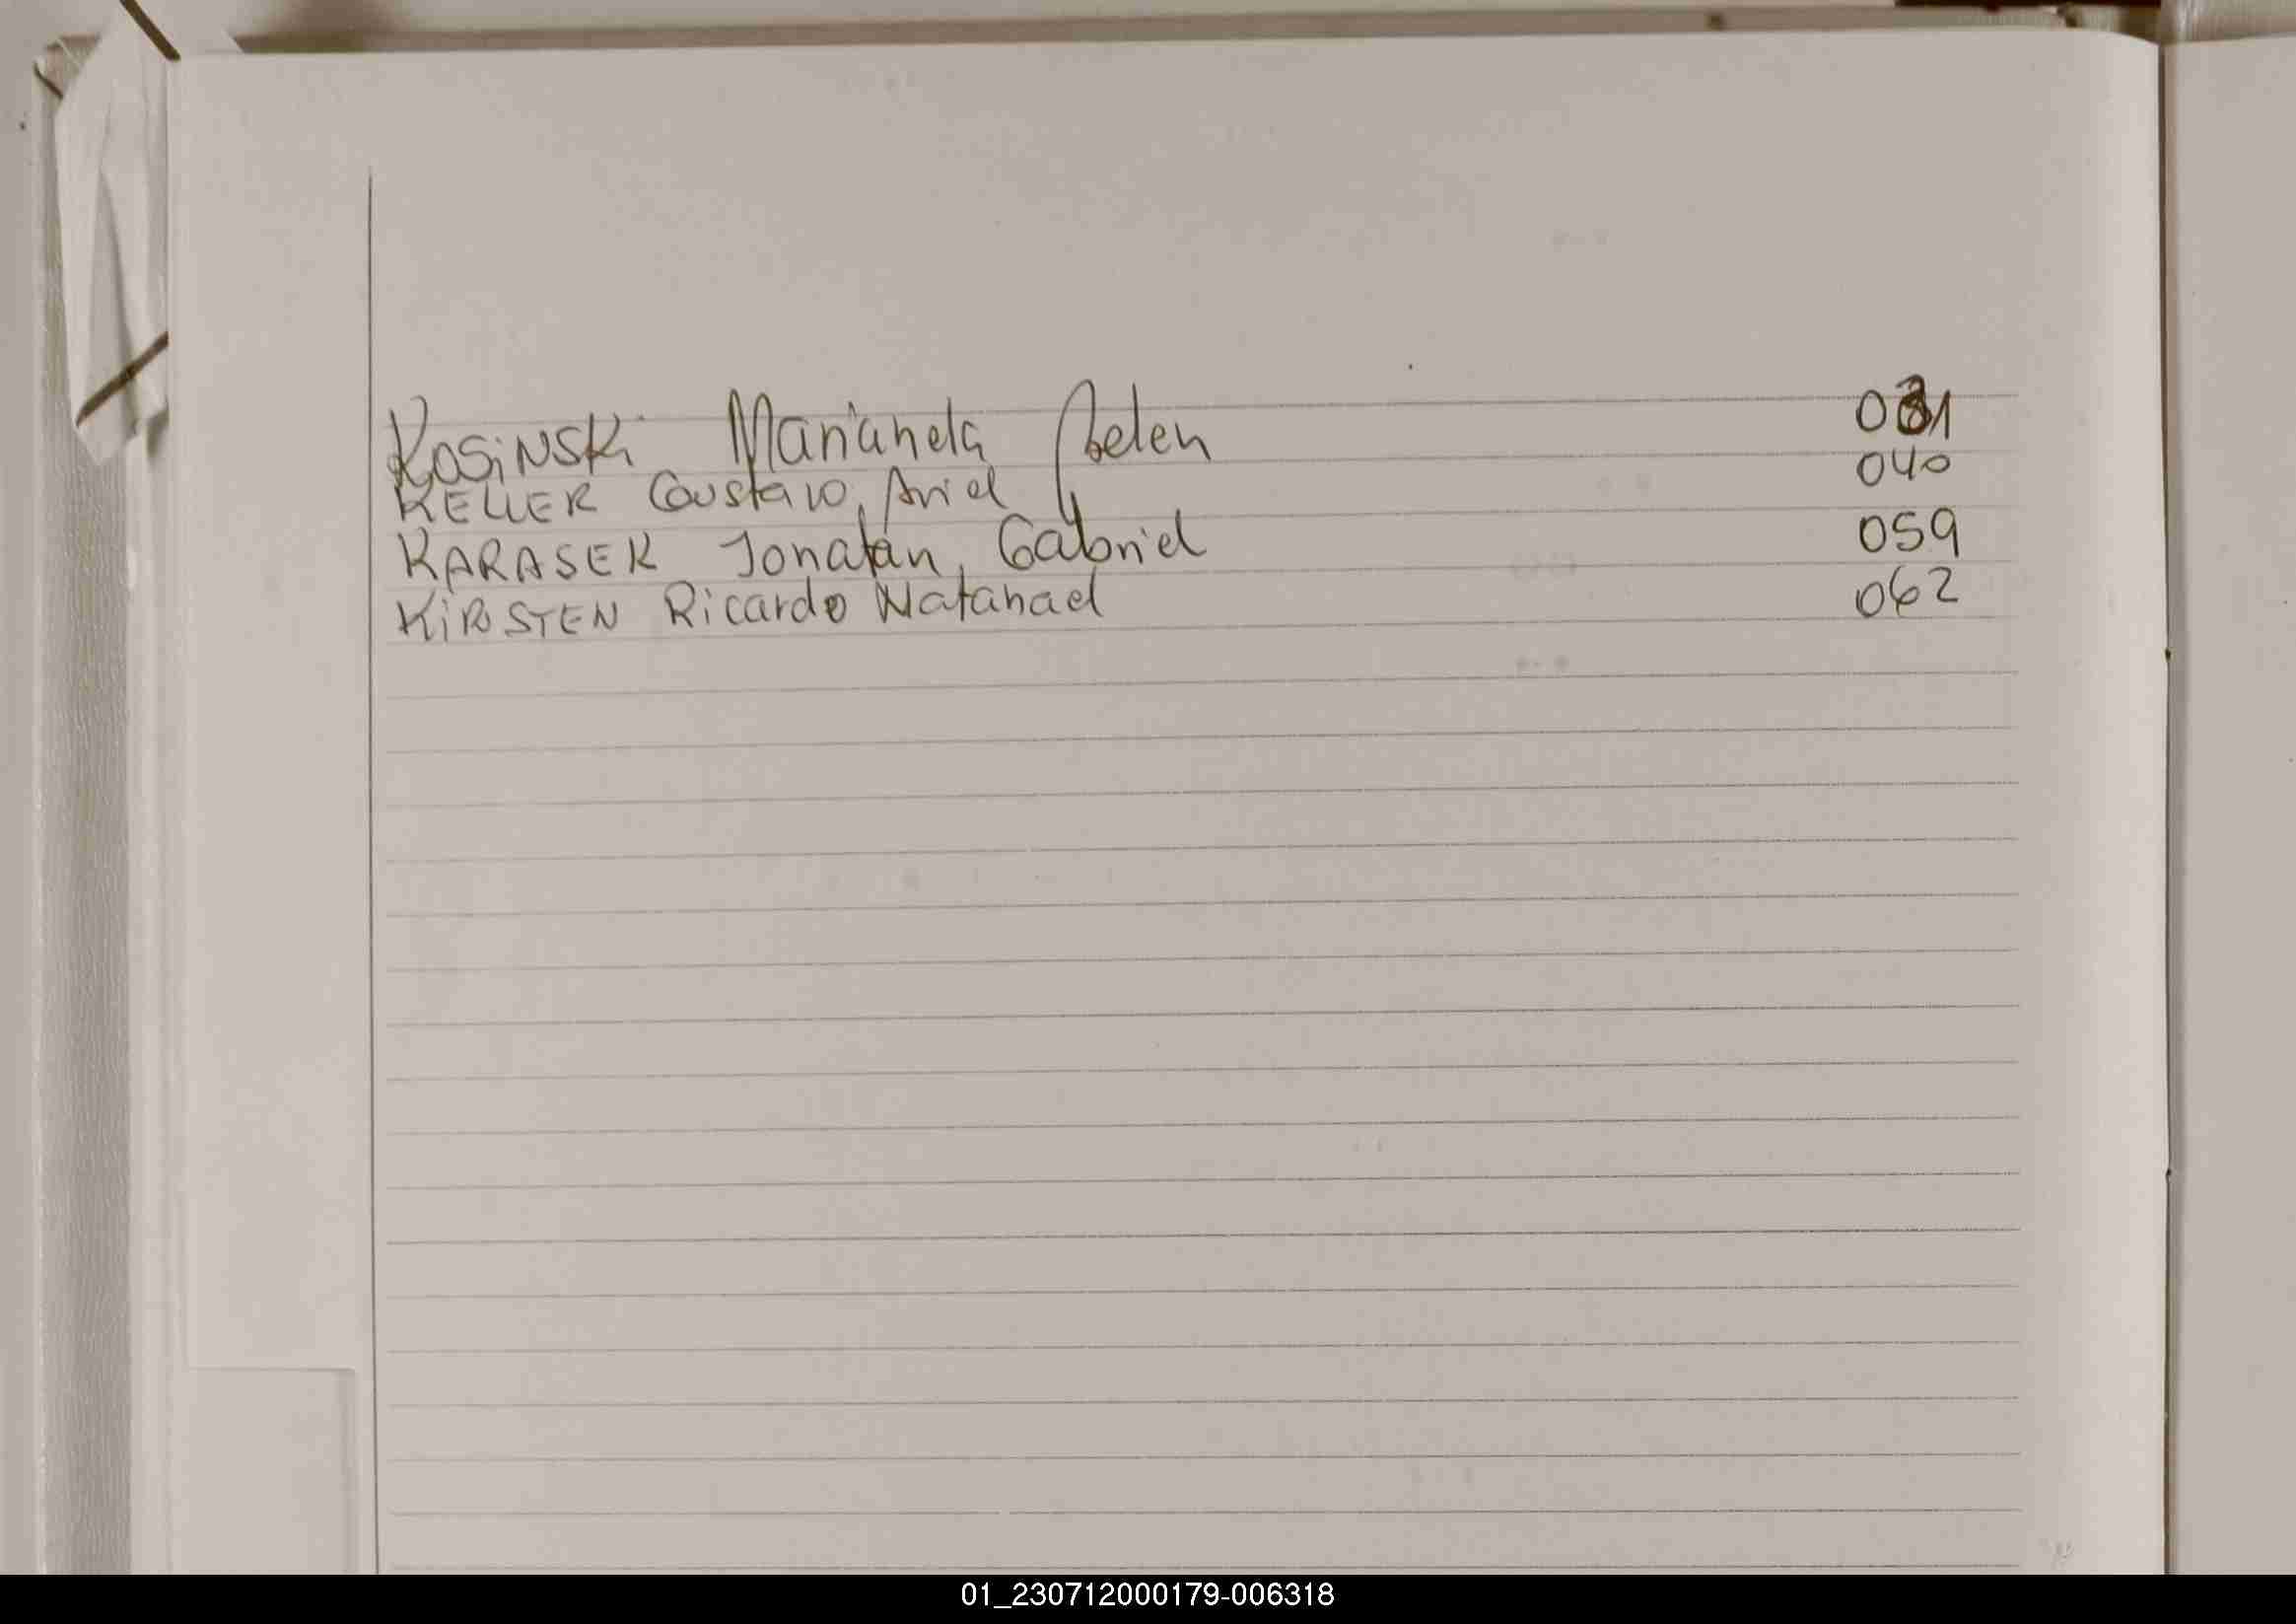 KOSINSKi Marianela Belen
KELLER Gustavo, Ariel
KARASEK Jonatan, Gabriel
KiRSTEN Ricardo Natanael
040
059
062
01_230712000179-006318